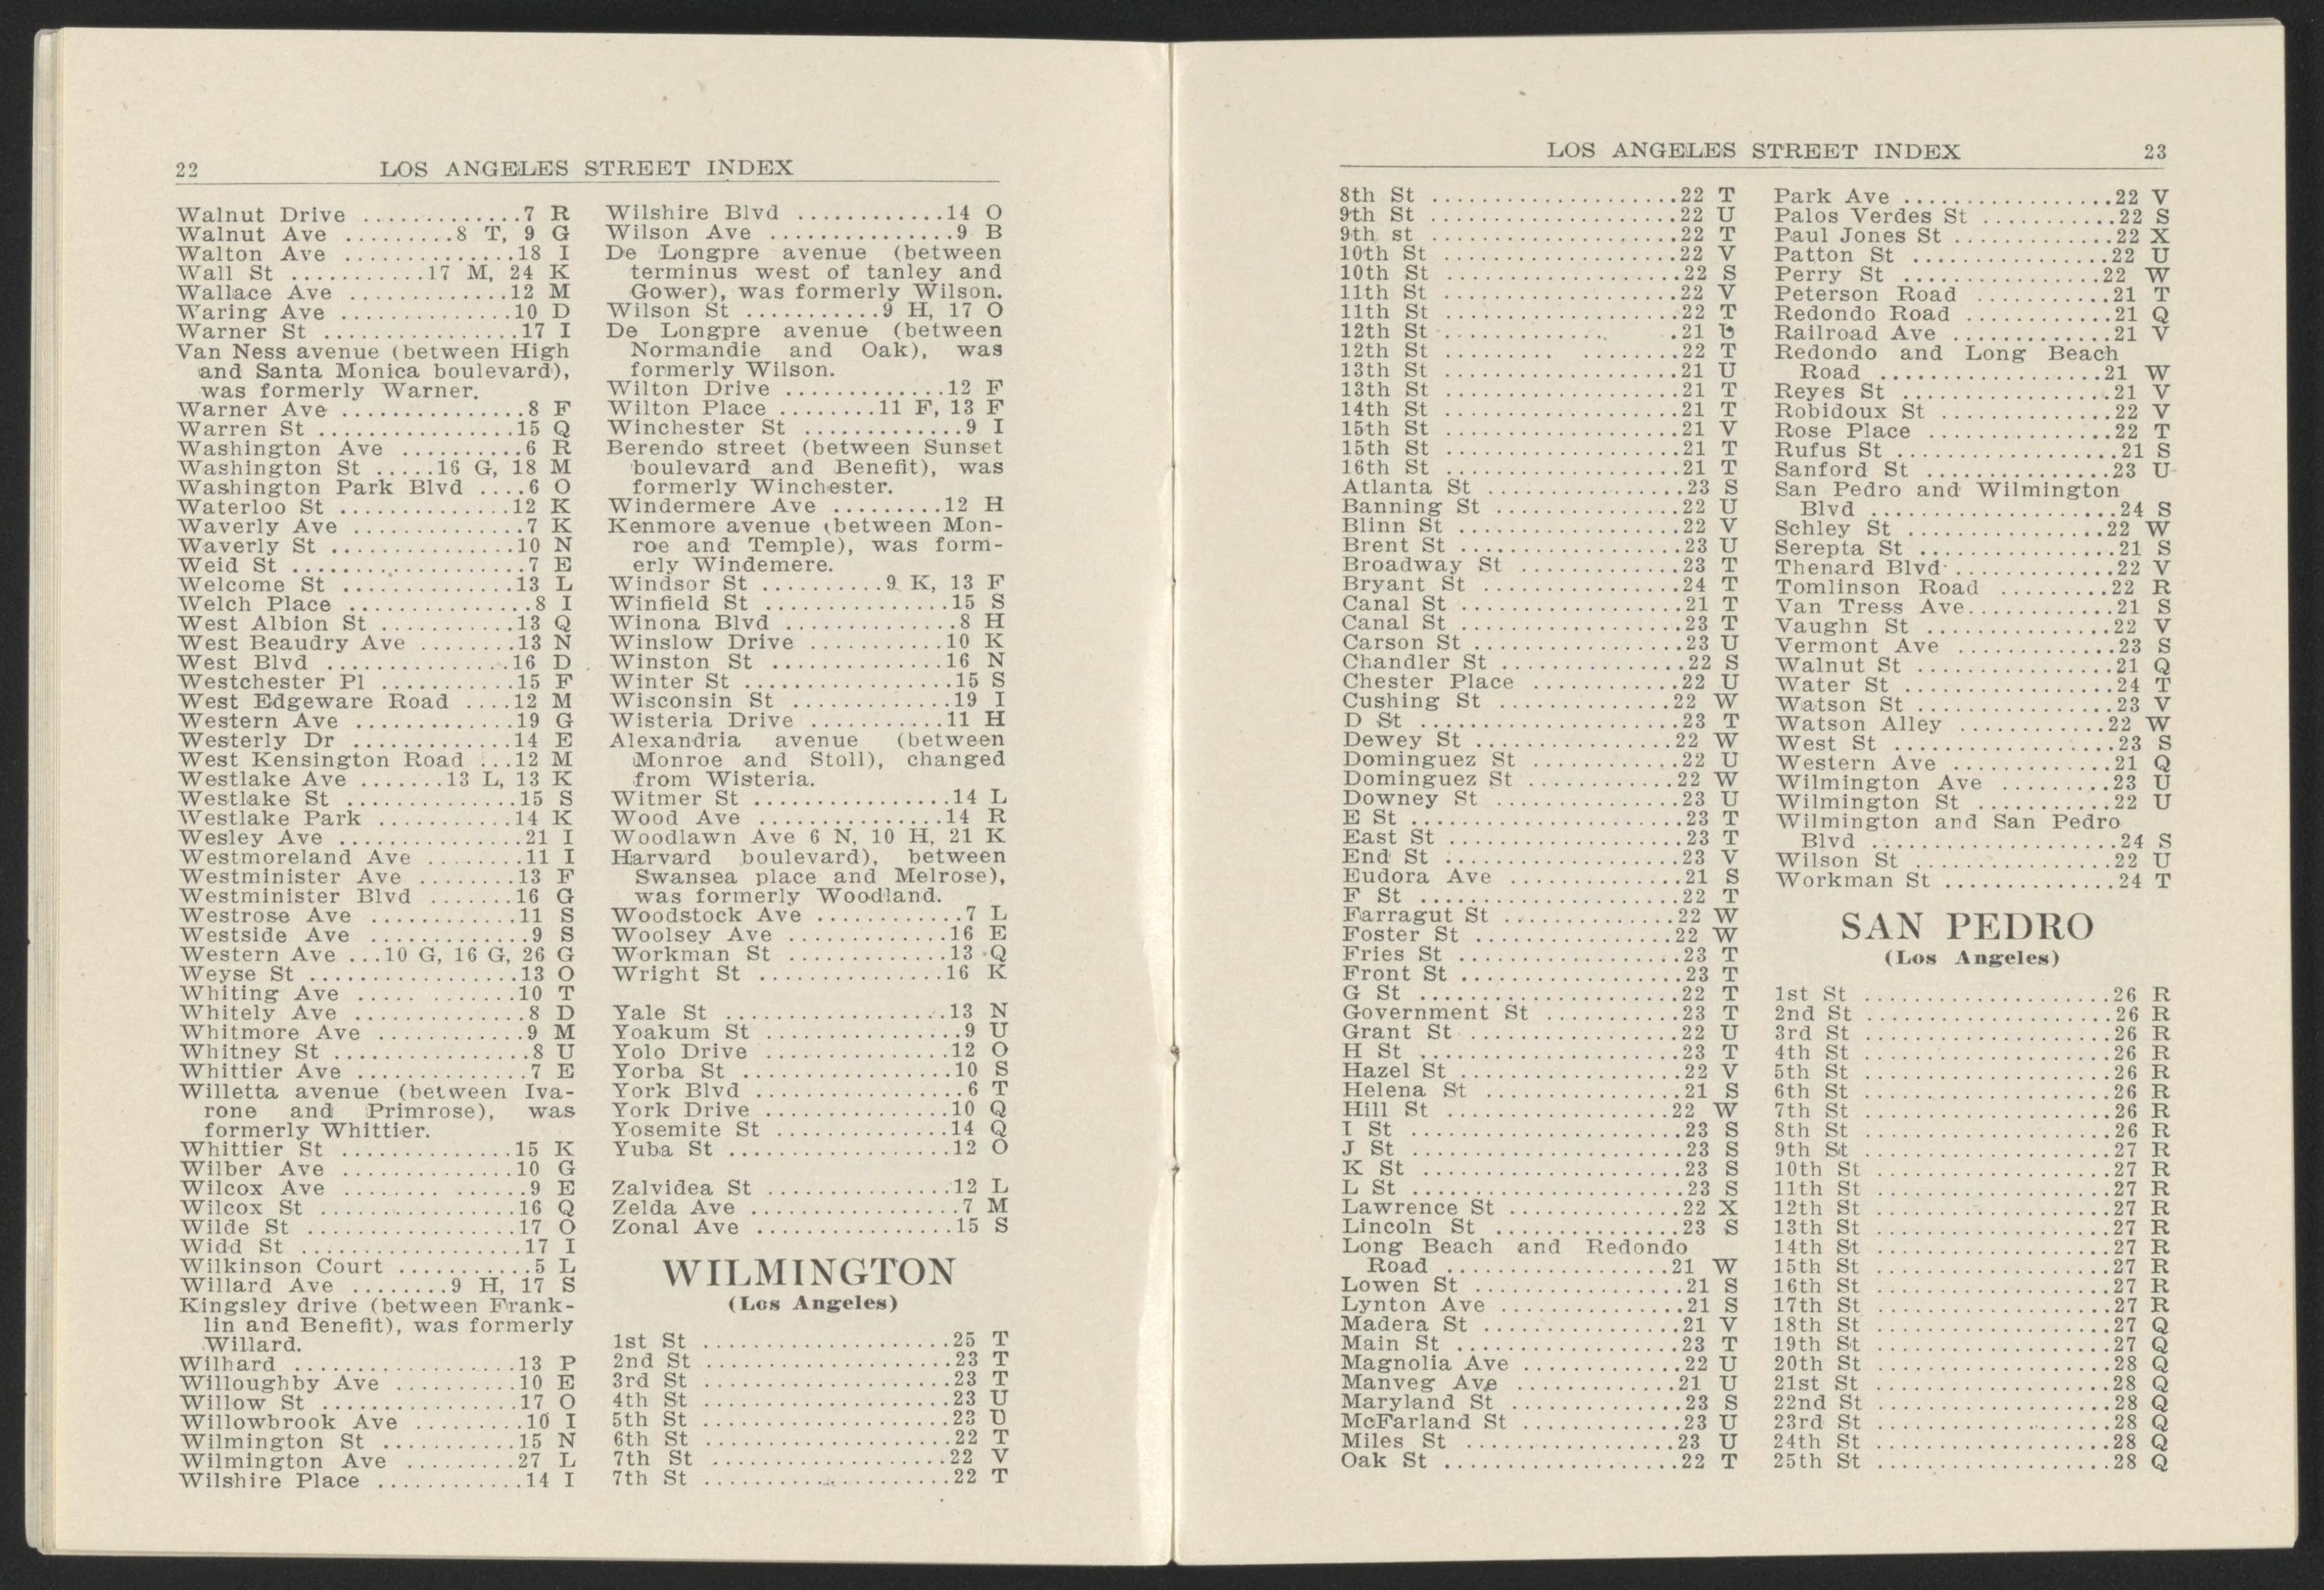 22 LOS ANGELES STREET INDEX
Walnut Drive ..............7 R
Walnut Ave .........8 T, 9 G
Walton Ave ..............18 I
Wall St ...........17 M, 24 K
Wallace Ave .............12 M
Waring Ave ..............10 D
Warner St ................17 I
Van Ness avenue (between High
and Santa Monica boulevard),
was formerly Warner.
Warner Ave ...............8 F
Warren St ................15 Q
Washington Ave ..........6 R
Washington St .....16 G, 18 M
Washington Park Blvd ....6 O
Waterloo St ..............12 K
Waverly Ave ..............7 K
Waverly St ...............10 N
Weid St ...................7 E
Welcome St ..............13 L
Welch Place ...............8 I
West Albion St ...........13 Q
West Beaudry Ave ........13 N
West Blvd ...............16 D
Westchester Pl ...........15 F
West Edgeware Road ....12 M
Western Ave .............19 G
Westerly Dr .............14 E
West Kensington Road ...12 M
Westlake Ave .......13 L, 13 K
Westlake St ..............15 S
Westlake Park ...........14 K
Wesley Ave ...............21 I
Westmoreland Ave ........11 I
Westminister Ave ........13 F
Westminister Blvd .......16 G
Westrose Ave ............11 S
Westside Ave .............9 S
Western Ave ...10 G, 16 G, 26 G
Weyse St .................13 O
Whiting Ave ..... .......10 T
Whitely Ave ..............8 D
Whitmore Ave ............9 M
Whitney St ................8 U
Whittier Ave ..............7 E
Willetta avenue (between Iva-
rone and Primrose), was
formerly Whittier.
Whittier St ..............15 K
Wilber Ave ..............10 G
Wilcox Ave ........ ......9 E
Wilcox St ................16 Q
Wilde St .................17 O
Widd St ..................17 I
Wilkinson Court ...........5 L
Willard Ave ........9 H, 17 S
Kingsley drive (between Frank-
lin and Benefit), was formerly
Willard.
Wilhard ..................13 P
Willoughby Ave ..........10 E
Willow St ................17 O
Willowbrook Ave .........10 I
Wilmington St ...........15 N
Wilmington Ave .........27 L
Wilshire Place ............14 I
Wilshire Blvd ............14 O
Wilson Ave ...............9 B
De Longpre avenue (between
terminus west of tanley and
Gower), was formerly Wilson.
Wilson St ...........9 H, 17 O
De Longpre avenue (between
Normandie and Oak), was
formerly Wilson.
Wilton Drive .............12 F
Wilton Place ........11 F, 13 F
Winchester St .............9 I
Berendo street (between Sunset
boulevard and Benefit), was
formerly Winchester.
Windermere Ave .........12 H
Kenmore avenue (between Mon-
roe and Temple), was form-
erly Windemere.
Windsor St ..........9 K, 13 F
Winfield St ...............15 S
Winona Blvd ..............8 H
Winslow Drive ...........10 K
Winston St ..............16 N
Winter St .................15 S
Wisconsin St .............19 I
Wisteria Drive ...........11 H
Alexandria avenue (between
Monroe and Stoll), changed
from Wisteria.
Witmer St ................14 L
Wood Ave ...............14 R
Woodlawn Ave 6 N, 10 H, 21 K
Harvard boulevard), between
Swansea place and Melrose),
was formerly Woodland.
Woodstock Ave ............7 L
Woolsey Ave .............16 E
Workman St .............13 Q
Wright St ...............16 K
Yale St ..................13 N
Yoakum St ...............9 U
Yolo Drive ...............12 O
Yorba St .................10 S
York Blvd .................6 T
York Drive ...............10 Q
Yosemite St ..............14 Q
Yuba St ..................12 O
Zalvidea St ...............12 L
Zelda Ave .................7 M
Zonal Ave ................15 S
WILMINGTON
(Los Angeles)
1st St ....................25 T
2nd St ....................23 T
3rd St ....................23 T
4th St ....................23 U
5th St ....................23 U
6th St ....................22 T
7th St ...................22 V
7th St ....................22 T
LOS ANGELES STREET INDEX 23
8th St ....................22 T
9th St ....................22 U
9th st ....................22 T
10th St ...................22 V
10th St ...................22 S
11th St ...................22 V
11th St ...................22 T
12th St ...................21 U
12th St ......... ........22 T
13th St ...................21 U
13th St ...................21 T
14th St ...................21 T
15th St ...................21 V
15th St ...................21 T
16th St ...................21 T
Atlanta St ................23 S
Banning St ...............22 U
Blinn St ...................22 V
Brent St ..................23 U
Broadway St .............23 T
Bryant St ................24 T
Canal St ..................21 T
Canal St ..................23 T
Carson St .................23 U
Chandler St ...............22 S
Chester Place ............22 U
Cushing St ..............22 W
D St .....................23 T
Dewey St ................22 W
Dominguez St ............22 U
Dominguez St ............22 W
Downey St ...............23 U
E St ......................23 T
East St ...................23 T
End St ...................23 V
Eudora Ave ..............21 S
F St .....................22 T
Farragut St ..............22 W
Foster St ................22 W
Fries St ..................23 T
Front St ..................23 T
G St .....................22 T
Government St ...........23 T
Grant St .................22 U
H St .....................23 T
Hazel St ..................22 V
Helena St ................21 S
Hill St ..................22 W
I St ......................23 S
J St ......................23 S
K St .....................23 S
L St ......................23 S
Lawrence St ..............22 X
Lincoln St ...............23 S
Long Beach and Redondo
Road ...................21 W
Lowen St .................21 S
Lynton Ave ...............21 S
Madera St ................21 V
Main St ..................23 T
Magnolia Ave .............22 U
Manveg Ave .............21 U
Maryland St ..............23 S
McFarland St .............23 U
Miles St .................23 U
Oak St ...................22 T
Park Ave .................22 V
Palos Verdes St ...........22 S
Paul Jones St .............22 X
Patton St ................22 U
Perry St ................22 W
Peterson Road ...........21 T
Redondo Road ............21 Q
Railroad Ave .............21 V
Redondo and Long Beach
Road ...................21 W
Reyes St .................21 V
Robidoux St ..............22 V
Rose Place ...............22 T
Rufus St ..................21 S
Sanford St ...............23 U
San Pedro and Wilmington
Blvd ....................24 S
Schley St ................22 W
Serepta St ................21 S
Thenard Blvd .............22 V
Tomlinson Road .........22 R
Van Tress Ave............21 S
Vaughn St ...............22 V
Vermont Ave .............23 S
Walnut St ................21 Q
Water St .................24 T
Watson St ................23 V
Watson Alley ............22 W
West St ..................23 S
Western Ave .............21 Q
Wilmington Ave .........23 U
Wilmington St ...........22 U
Wilmington and San Pedro
Blvd ....................24 S
Wilson St ................22 U
Workman St ..............24 T
SAN PEDRO
(Los Angeles)
1st St ....................26 R
2nd St ....................26 R
3rd St ....................26 R
4th St ....................26 R
5th St ....................26 R
6th St ....................26 R
7th St ....................26 R
8th St ....................26 R
9th St ....................27 R
10th St ...................27 R
11th St ...................27 R
12th St ...................27 R
13th St ...................27 R
14th St ...................27 R
15th St ...................27 R
16th St ...................27 R
17th St ...................27 R
18th St ...................27 Q
19th St ...................27 Q
20th St ...................28 Q
21st St ...................28 Q
22nd St ...................28 Q
23rd St ...................28 Q
24th St ...................28 Q
25th St ...................28 Q